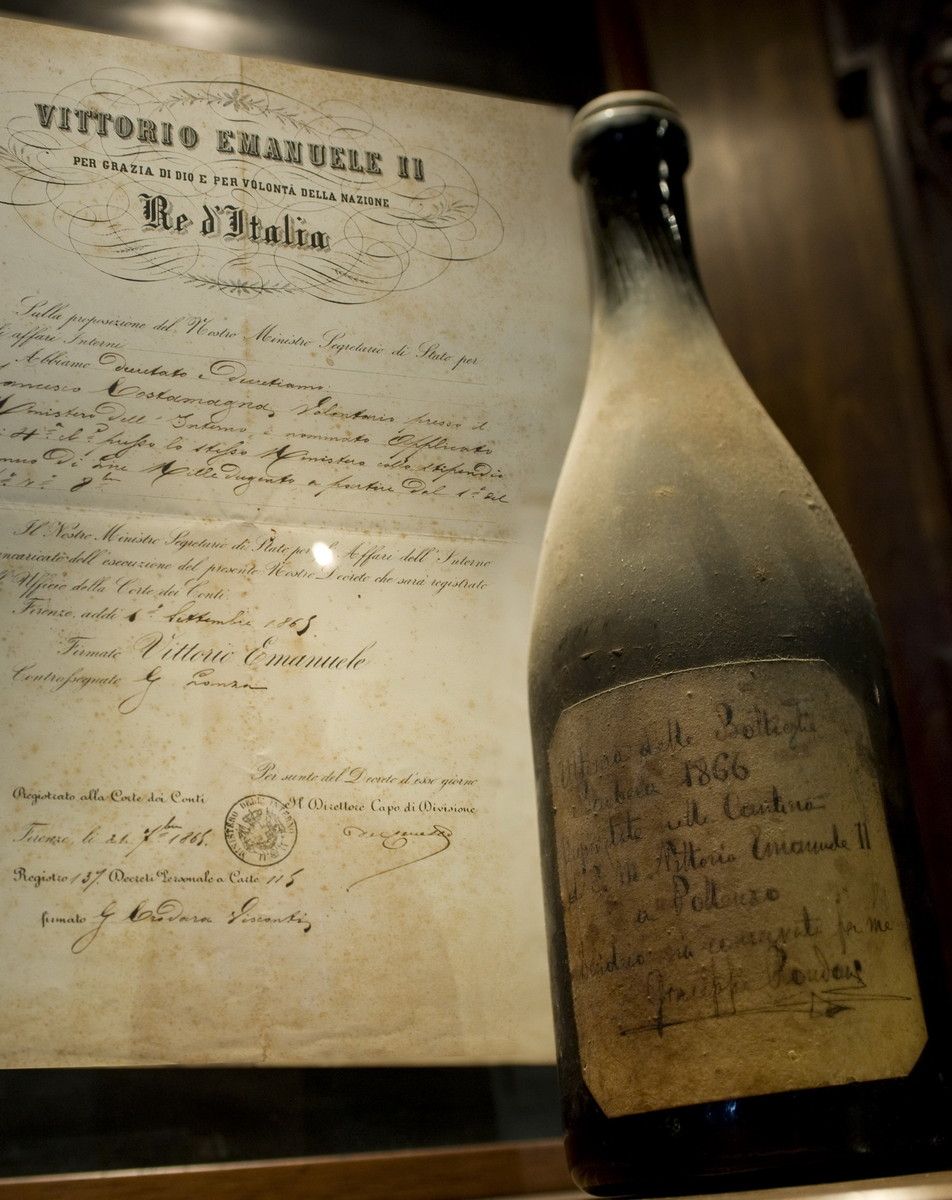 VITTORIO EMANUELE II
PER GRAZIA DI DIO E PER VOLONTÀ DELLA NAZIONE
Re d'Italia
Sulla proposizione del Nostro Ministro Segretario di Stato per
affari Interni
Abbiamo decretato e decretiamo
Costamagna, Volontario presso il
Ministero dell' Interno è nominato Applicato
di 4ª cl. presso lo stesso Ministero collo stipendio
annuo di lire Mille dugento a partire dal 1º del
Il Nostro Ministro Segretario di Stato per gli Affari dell' Interno
incaricato dell' esecuzione del presente Nostro Decreto che sarà registrato
Ufficio della Corte dei Conti
Firenze, addì 1º Settembre 1865
Firmato Vittorio Emanuele
Controssegnato G Lanza
Per sunto del Decreto d'esse giorno
Registrato alla Corte dei Conti
Il Direttore Capo di Divisione
MINISTERO DELL'INTERNO
Firenze, li 21. 7bre 1865.
Registro 137. Decreti Personale a Carte 115
firmato G Crodara Visconti
delle Bottiglie
Barbera 1866
nelle Cantine
di S. M. Vittorio Emanuele II
a Pollenzo
per me
Giuseppe